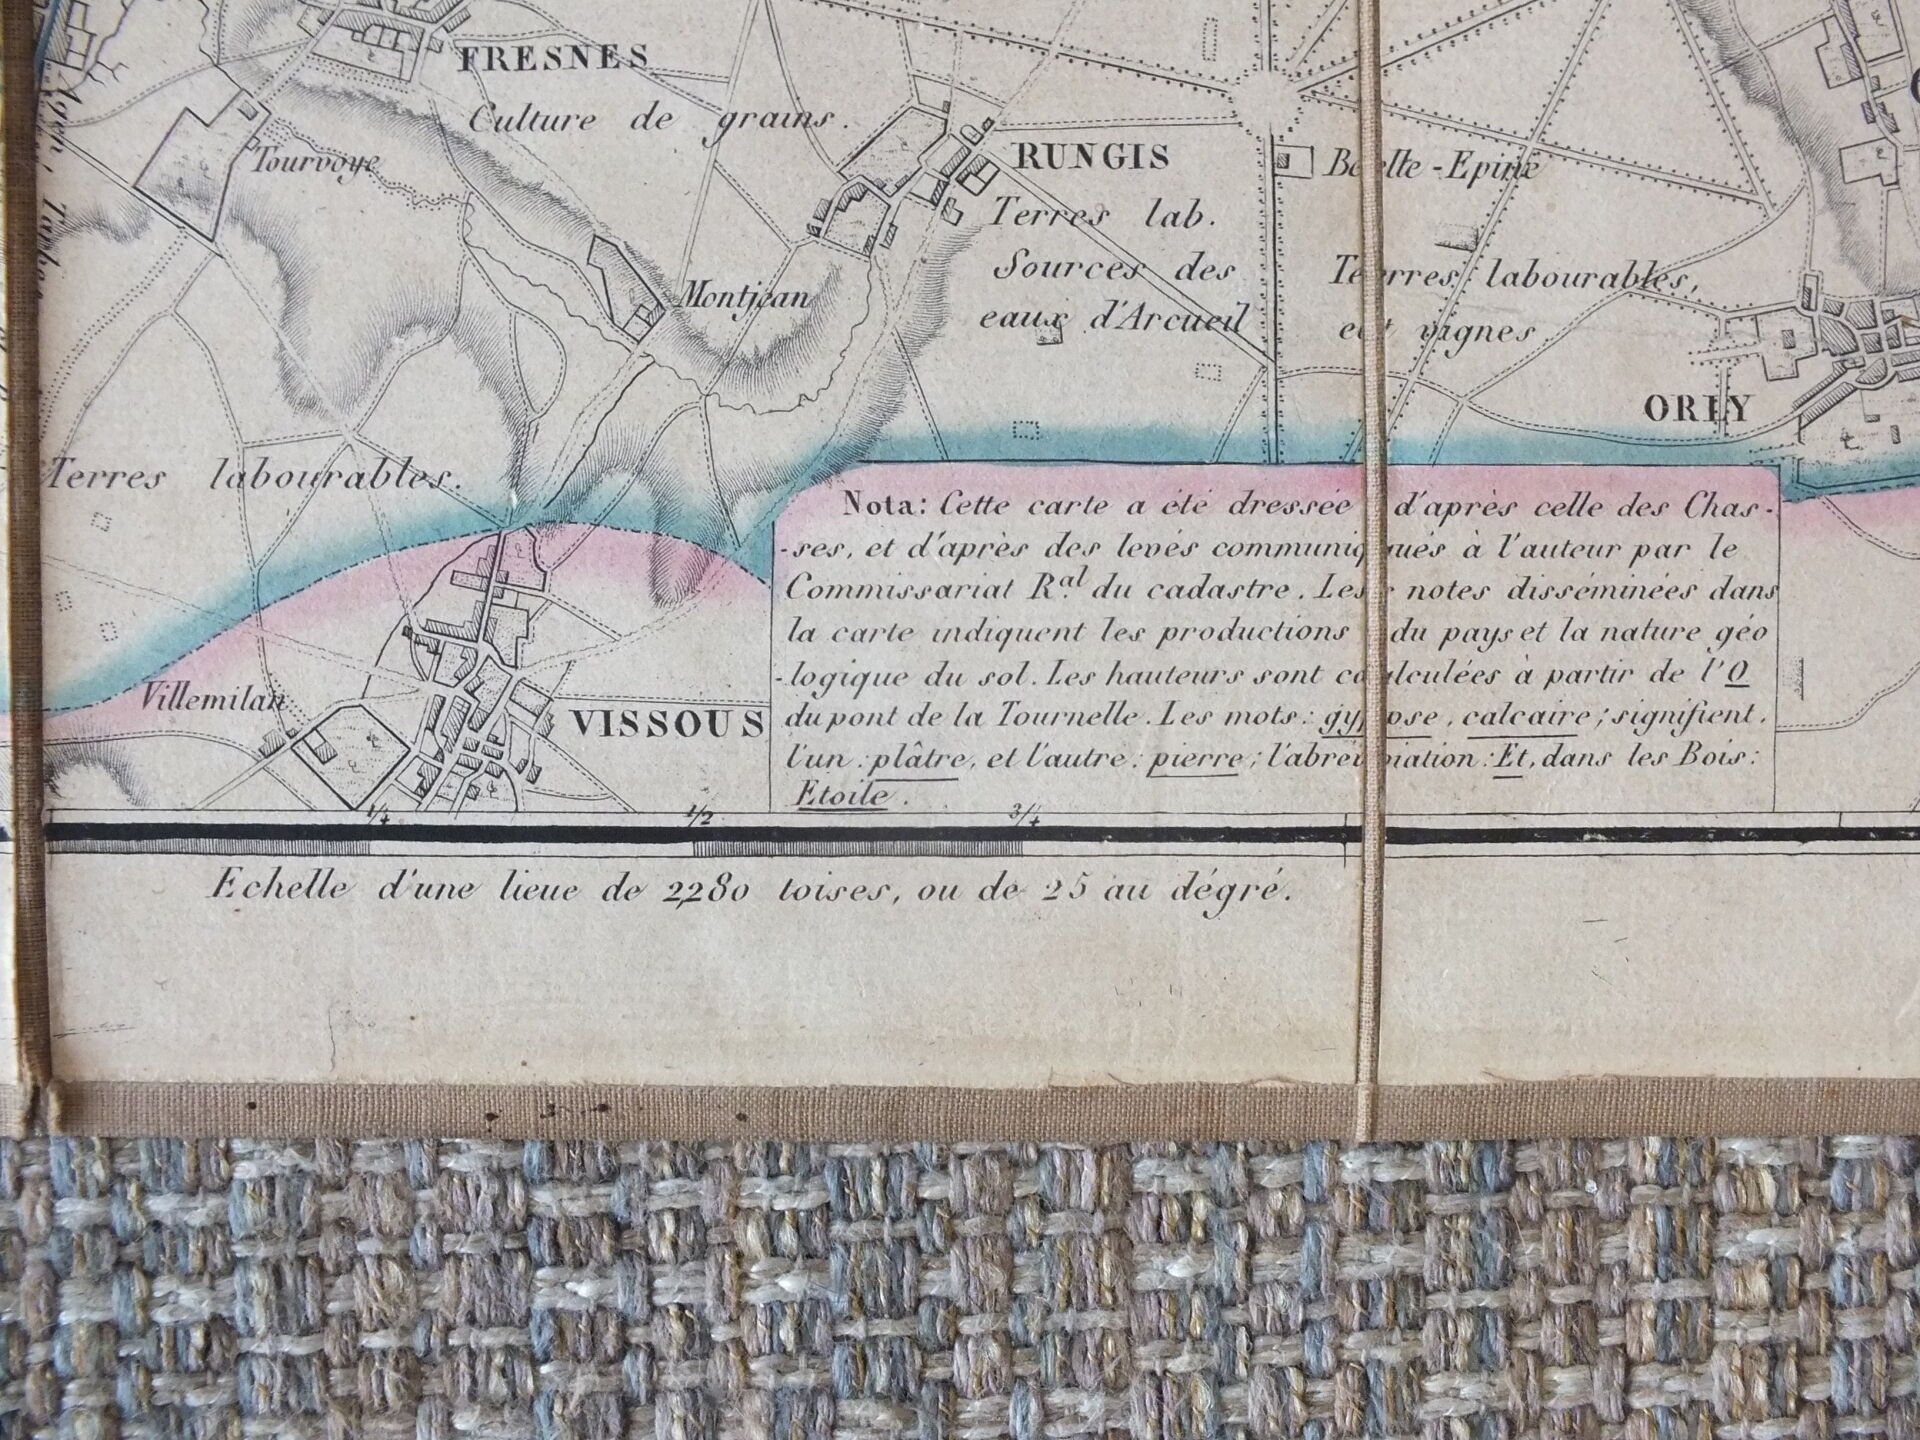 FRESNES
Culture de grains.
Tourvoye
RUNGIS
Belle-Epine
Terres lab.
Sources des
eaux d'Arcueil
Montjean
Terres labourables,
et vignes
ORLY
Terres labourables.
Nota: Cette carte a été dressée d'après celle des Chas-
-ses, et d'après des levés communiqués à l'auteur par le
Commissariat R.al du cadastre. Les notes disséminées dans
la carte indiquent les productions du pays et la nature géo
-logique du sol. Les hauteurs sont calculées à partir de l'O
du pont de la Tournelle. Les mots: gypse, calcaire; signifient,
l'un: plâtre, et l'autre: pierre; l'abréviation: Et, dans les Bois:
Etoile.
Villemilan
VISSOUS
1/4 1/2 3/4
Echelle d'une lieue de 2280 toises, ou de 25 au dégré.